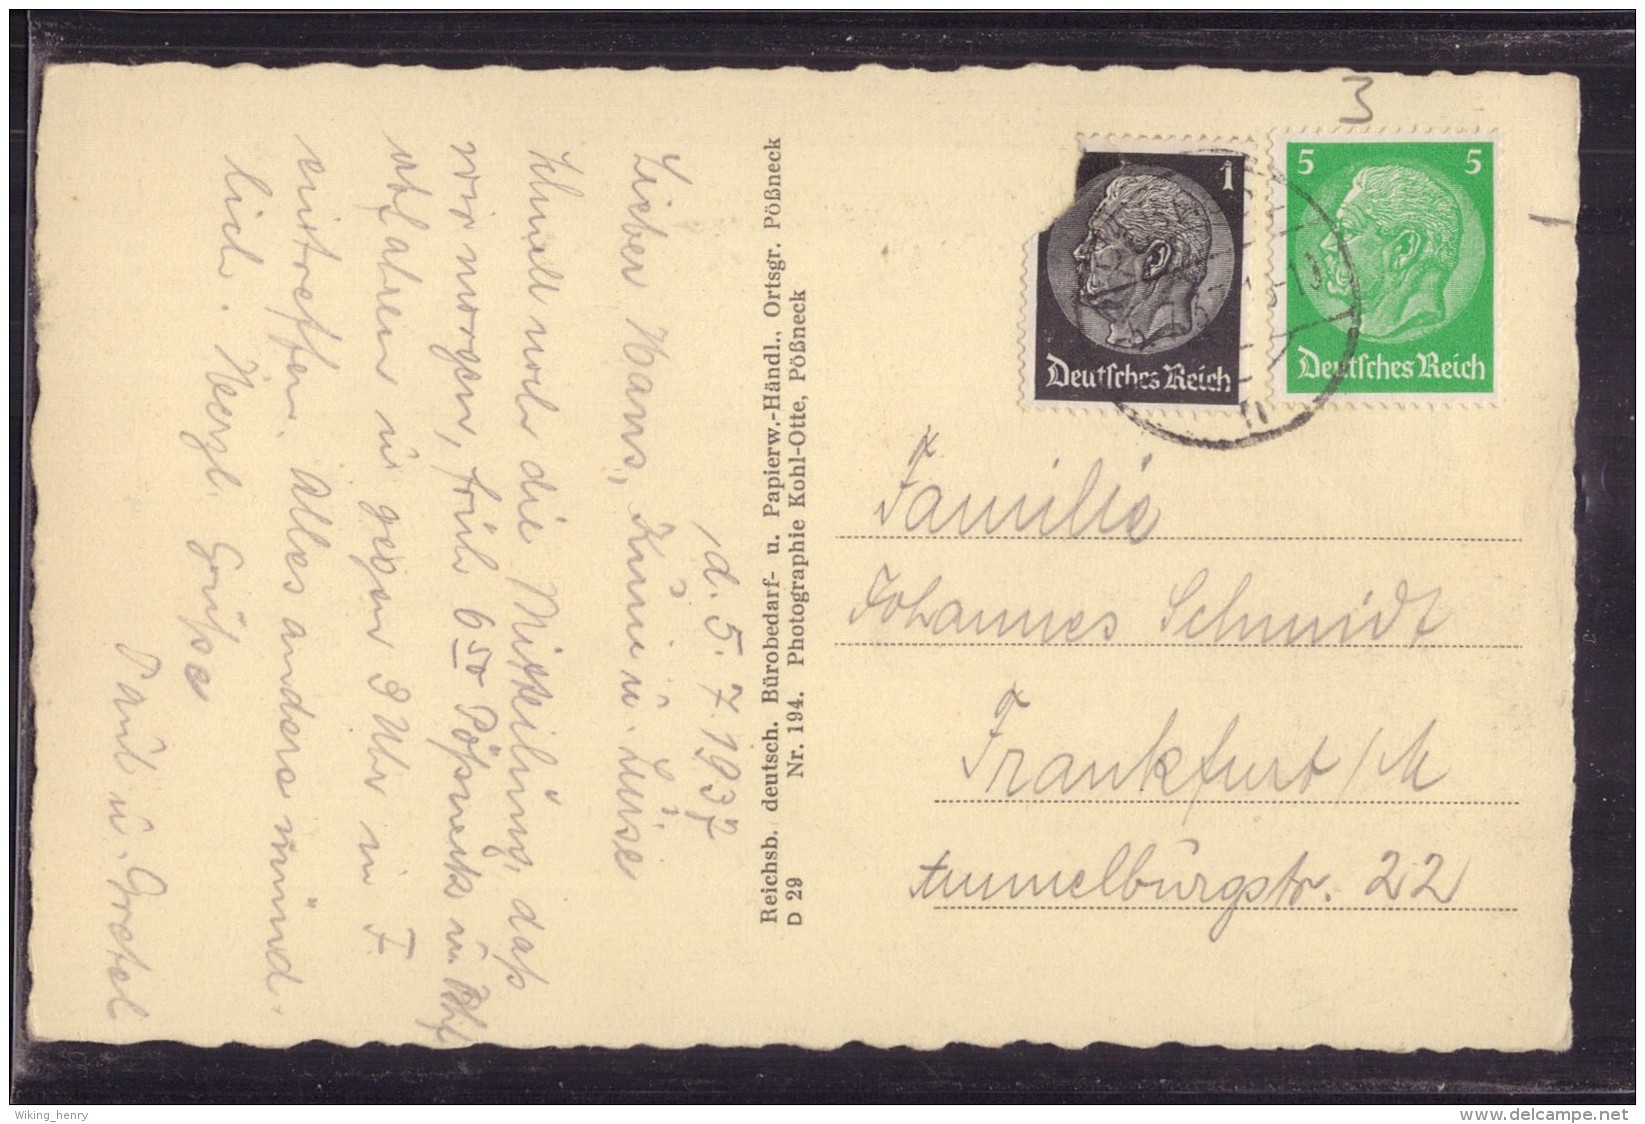 d. 5.7.1937
Lieber Hans, Änne u. Luise
Schnell noch die Mitteilung, daß
wir morgen, früh 6 50 Pößneck u. Bhf
abfahren u. gegen 3 Uhr in F.
eintreffen. Alles andere münd-
lich. Herzl. Grüße
Paul u. Gretel
Reichsb. deutsch. Bürobedarf- u. Papierw.-Händl., Ortsgr. Pößneck
D 29 Nr. 194. Photographie Kohl-Otte, Pößneck
3
1
1
Deutsches Reich
5 5
Deutsches Reich
Familie
Johannes Schmidt
Frankfurt/M
Ammelburgstr. 22
Wiking_henry
www.delcampe.net